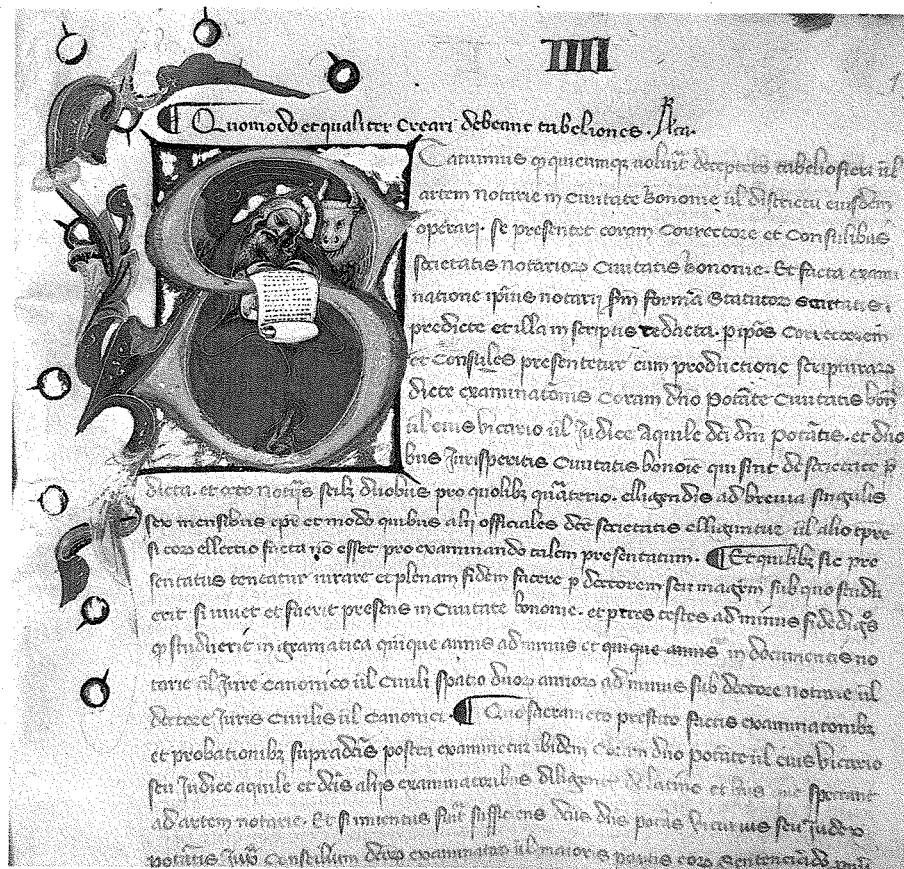 IIII
Quomodo et qualiter creari debeant tabeliones. Rca.
Statuimus q quicumq; voluit decetero tabelio fieri ul
artem notarie in Civitate bononie ul districtu eiusdem
operari. se presentet coram Correctore et Consulibus
societatis notarioꝝ Civitatis bononie. Et facta exami
natione ipius notarij scdm formã Statutoꝝ societatis
predicte et illa in scriptis redacta. p ipos Correctorem
et Consules presentetur cum productione scripturaꝝ
dicte examinatõnis Coram dño potãte Civitatis boñ
ul eius vicario ul Judice Aquile dči dñi potãtis. et duo
bus Jurisperitis Civitatis bonoie qui sint de societate p̃
dicta. et octo notijs scilz duobus pro quolibz quãrterio. elligendis ad brevia singulis
sex mensibus tpe et modo quibus alij officiales dce societatis elliguntur ul alio tpre
si coꝝ ellectio facta nõ esset pro examinando talem presentatum. ¶ Et quilibz sic pre
sentatus teneatur iurare et plenam fidem facere p doctorem seu magrm sub quo studu
erit si vivet et fuerit presens in Civitate bononie. et p tres testes ad minus fide digos
q studuerit in gramatica quinque annis ad minus et quinque annis in documentis no
tarie ul Jure Canonico ul Civili spatio duoꝝ annoꝝ ad minus sub doctore notarie ul
doctore Juris Civilis ul Canonici. ¶ Quo sacramẽto prestito factis examinatonibz
et probationibz supradc̃is postea examinetur ibidem Coram dño potãte ul eius vicario
seu Judice aquile et dčis alijs examinatoribus diligenter de latino et his que spectant
ad artem notarie. Et si inventus fuit sufficiens dčus dñs potãs vicarius seu Judex
potãtis Juxᵃ Consilium dčoꝝ examinatoꝝ ul maioris partis eoꝝ Sentenciãdo